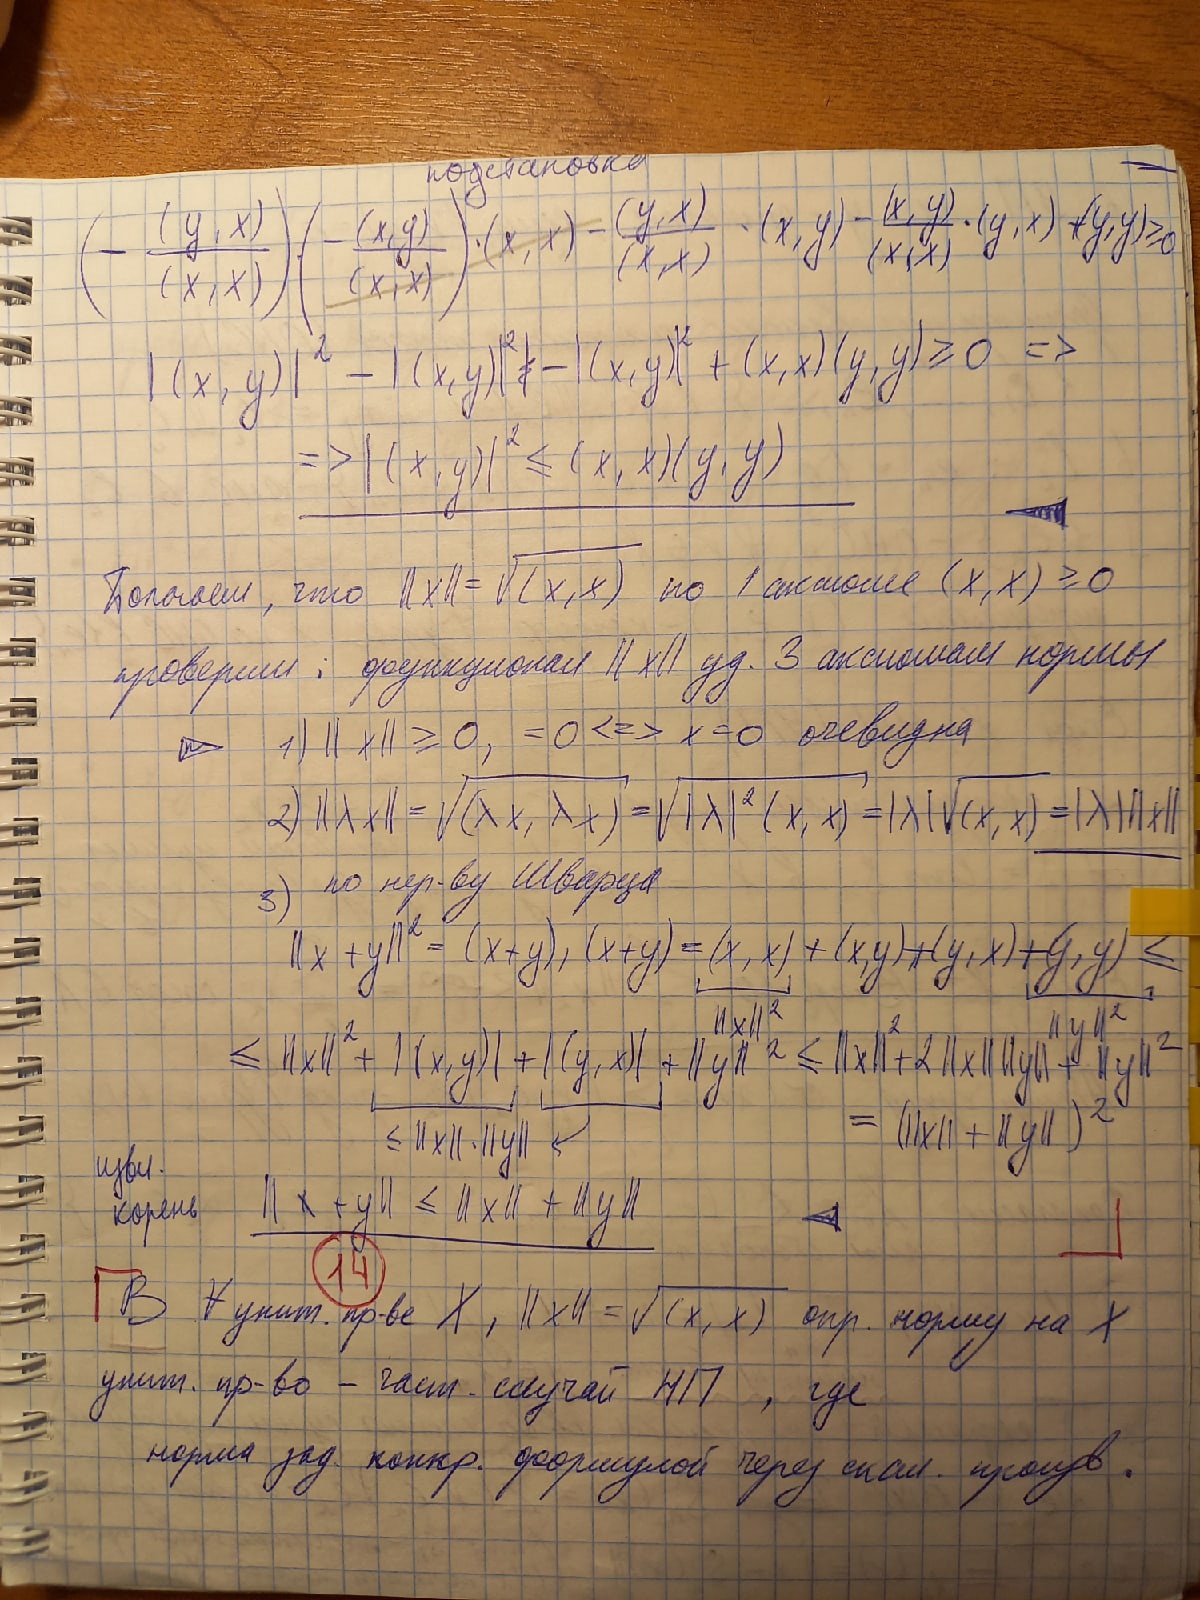 подстановка
(- (y,x)/(x,x))·(- (x,y)/(x,x))·(x,x) - (y,x)/(x,x) ·(x,y) - (x,y)/(x,x) ·(y,x) + (y,y) ≥ 0
|(x,y)|² - |(x,y)|² - |(x,y)|² + (x,x)(y,y) ≥ 0 =>
=> |(x,y)|² ≤ (x,x)(y,y)
Полагаем, что ||x|| = √(x,x) по 1 аксиоме (x,x) ≥ 0
проверим: функционал ||x|| уд. 3 аксиомам нормы
▷ 1) ||x|| ≥ 0, =0 <=> x=0 очевидна
2) ||λx|| = √(λx, λx) = √|λ|²(x,x) = |λ|√(x,x) = |λ| ||x||
3) по нер-ву Шварца
||x+y||² = (x+y),(x+y) = (x,x) + (x,y) + (y,x) + (y,y) ≤
||x||² ||y||²
≤ ||x||² + |(x,y)| + |(y,x)| + ||y||² ≤ ||x||² + 2||x|| ||y|| + ||y||²
≤ ||x||·||y|| ↙ = (||x|| + ||y||)²
извл.
корень ||x+y|| ≤ ||x|| + ||y|| ◁
14
В ∀ унит. пр-ве X, ||x|| = √(x,x) опр. норму на X
унит. пр-во - част. случай НП, где
норма зад. конкр. формулой через скал. произв.